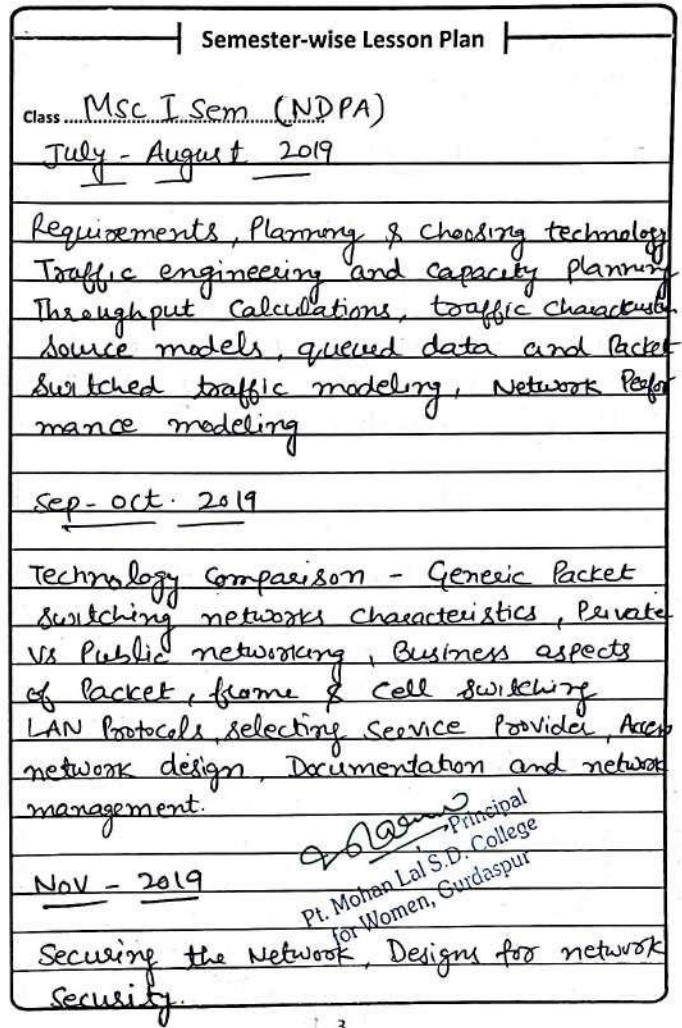 Semester-wise Lesson Plan
Class MSC I Sem (NDPA)
July - August 2019
Requirements, Planning & choosing technology
Traffic engineering and capacity planning
Throughput Calculations, traffic
source models, queued data and Packet
Switched traffic modeling, Network Perfor
mance modeling
Sep - oct. 2019
Technology Comparison - Generic Packet
switching networks characteristics, Private
vs Public networking, Business aspects
of Packet, frame & cell switching
LAN Protocols, selecting Service Provider, Access
network design, Documentation and network
management.
Principal
Pt. Mohan Lal S.D. College
for Women, Gurdaspur
Nov - 2019
Securing the Network, Designs for network
Security.
3